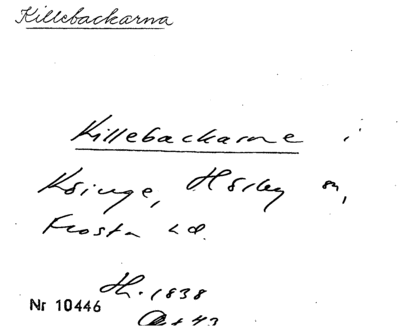 Killebackarna
Killebackarne i
Hörby sn,
Frosta hd.
Nr 10446
1838